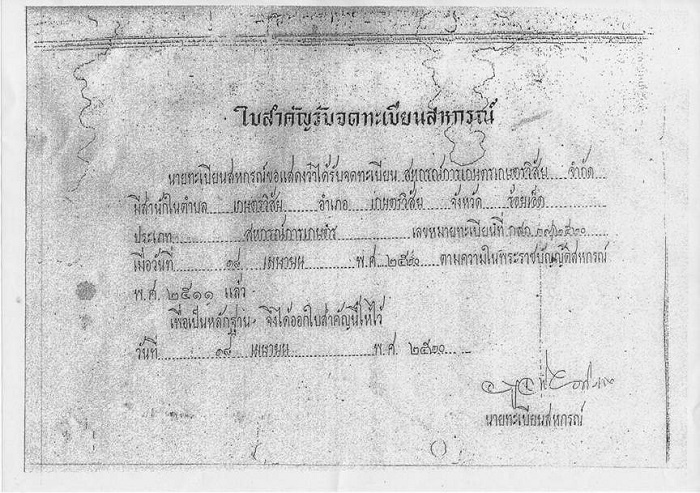 ใบสำคัญรับจดทะเบียนสหกรณ์
นายทะเบียนสหกรณ์ขอแสดงว่าได้รับจดทะเบียน สหกรณ์การเกษตรเกษตรวิสัย จำกัด
มีสำนักในตำบล เกษตรวิสัย อำเภอ เกษตรวิสัย จังหวัด ร้อยเอ็ด
ประเภท สหกรณ์การเกษตร เลขหมายทะเบียนที่
เมื่อวันที่ ๑๘ เมษายน พ.ศ. ๒๕๒๐ ตามความในพระราชบัญญัติสหกรณ์
พ.ศ ๒๕๑๑ แล้ว
เพื่อเป็นหลักฐาน จึงได้ออกใบสำคัญนี้ให้ไว้
วันที่ ๑๘ เมษายน พ.ศ. ๒๕๒๐
นายทะเบียนสหกรณ์